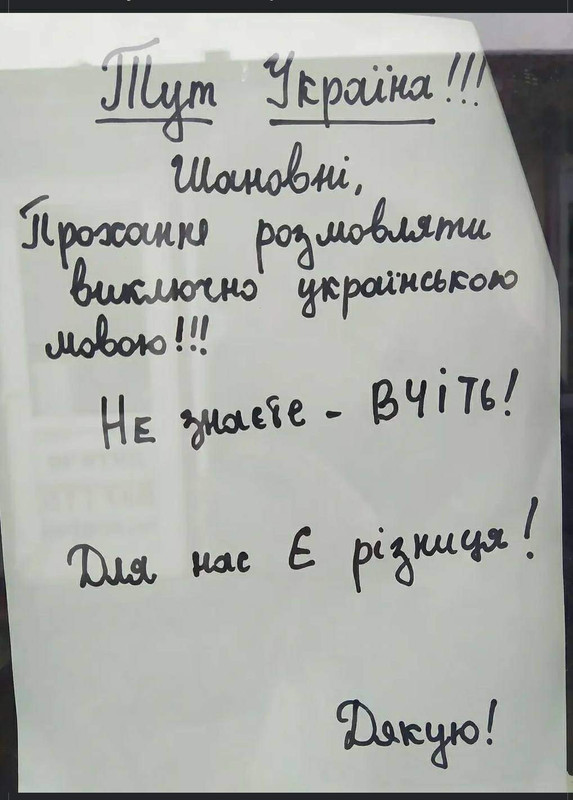 Тут Україна!!!
Шановні,
Прохання розмовляти
виключно українською
мовою!!!
Не знаєте - ВЧіТЬ!
Для нас Є різниця!
Дякую!